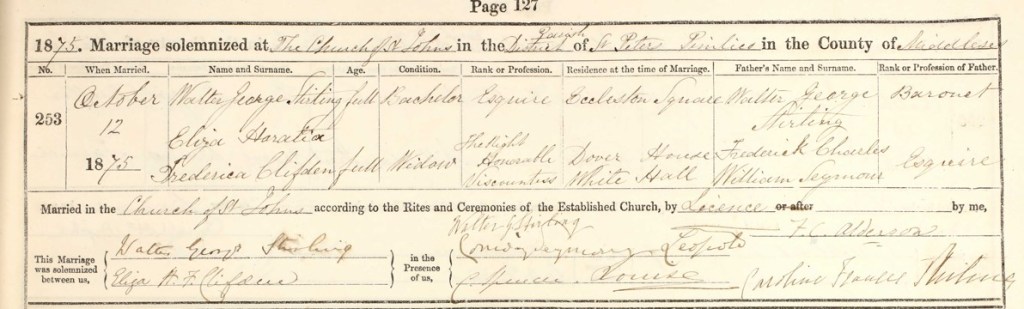 Page 127
1875. Marriage solemnized at The Church of St Johns in the District Parish of St Peter Pimlico in the County of Middlesex
No. When Married. Name and Surname. Age. Condition. Rank or Profession. Residence at the time of Marriage. Father's Name and Surname. Rank or Profession of Father.
253 October 12 1875
Walter George Stirling full Bachelor Esquire Eccleston Square Walter George Stirling Baronet
Eliza Horatia Frederica Clifden full Widow The Right Honorable Viscountess Dover House White Hall Frederick Charles William Seymour Esquire
Married in the Church of St Johns according to the Rites and Ceremonies of the Established Church, by Licence or after by me,
F. C. Alderson
This Marriage was solemnized between us,
Walter George Stirling
Eliza H. F. Clifden
in the Presence of us,
Walter G Stirling
Leopold
C. Spencer Louise
Caroline Frances Stirling